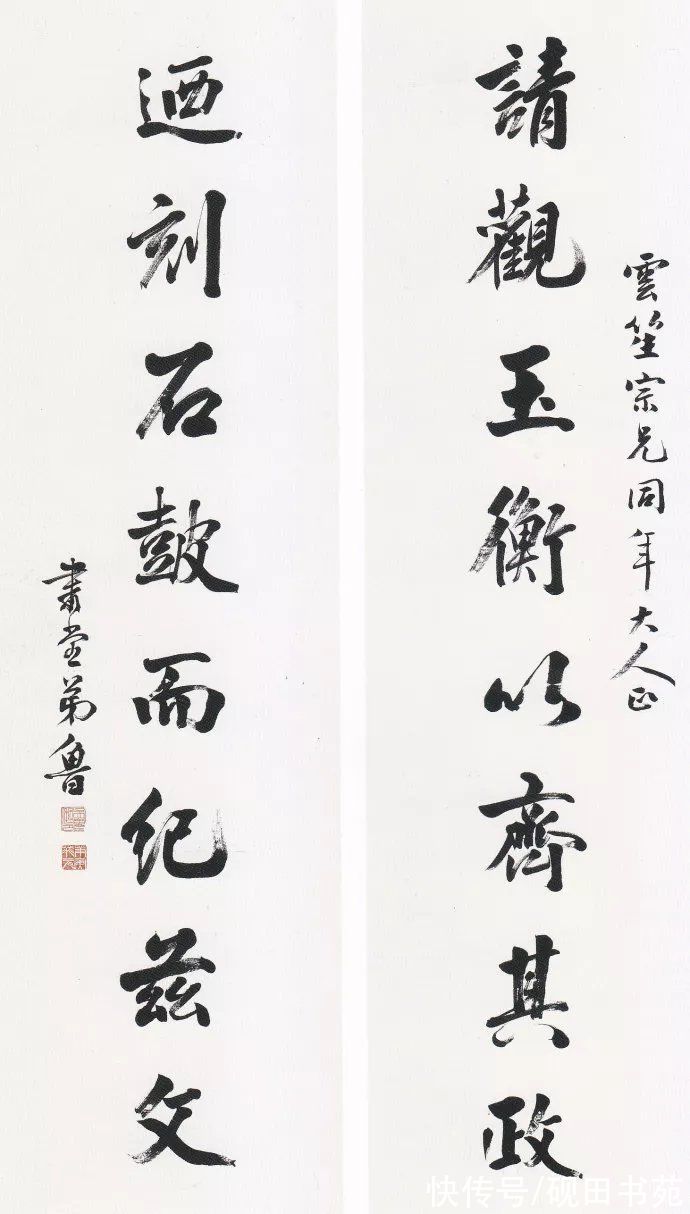 雲笙宗兄同年大人正
請觀玉衡以齊其政
迺刻石鼓而紀茲文
書堂弟魯
快传号/砚田书苑